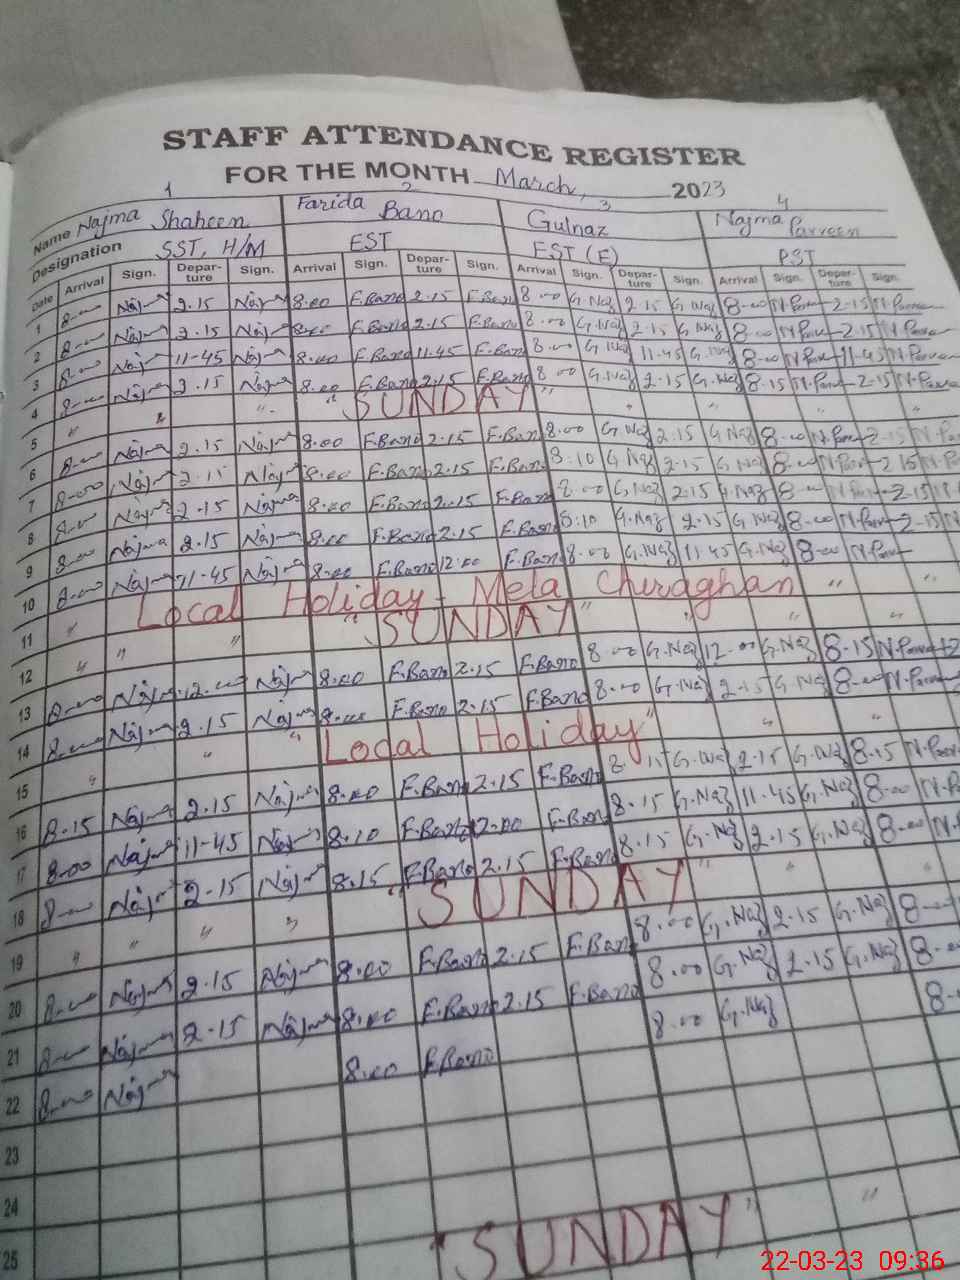 STAFF ATTENDANCE REGISTER
FOR THE MONTH March, 2023
1 2 3 4
Name Najma Shaheen Farida Bano Gulnaz Najma Parveen
Designation SST, H/M EST EST (E) PST
Date Arrival Sign. Depar-ture Sign. Arrival Sign. Depar-ture Sign. Arrival Sign. Depar-ture Sign. Arrival Sign. Depar-ture Sign.
1 8-00 Najma 2.15 Najma 8.00 F.Bano 2.15 F.Bano 8.00 G.Naz 2.15 G.Naz 8-00 N.Parv 2-15 N.Parve
2 8-00 Najma 2.15 Najma 8.00 F.Bano 2.15 F.Bano 8.00 G.Naz 2.15 G.Naz 8-00 N.Parv 2-15 N.Parve
3 8-00 Najma 11-45 Najma 8.00 F.Bano 11.45 F.Bano 8.00 G.Naz 11.45 G.Naz 8-00 N.Parv 11-45 N.Parve
4 8-00 Najma 2.15 Najma 8.00 F.Bano 2.15 F.Bano 8.00 G.Naz 2.15 G.Naz 8.15 N.Parv 2-15 N.Parve
5 " " " " SUNDAY " " " " "
6 8-00 Najma 2.15 Najma 8.00 F.Bano 2.15 F.Bano 8.00 G.Naz 2.15 G.Naz 8-00 N.Parv 2-15
7 8-00 Najma 2.15 Najma 8.00 F.Bano 2.15 F.Bano 8.10 G.Naz 2.15 G.Naz 8-00 N.Parv 2.15
8 8-00 Najma 2.15 Najma 8.00 F.Bano 2.15 F.Bano 8.00 G.Naz 2.15 G.Naz 8-00 N.Parv 2-15
9 8-00 Najma 2.15 Najma 8.00 F.Bano 2.15 F.Bano 8.10 G.Naz 2.15 G.Naz 8-00 N.Parv 2-15
10 8-00 Najma 11-45 Najma 8.00 F.Bano 12.00 F.Bano 8.00 G.Naz 11.45 G.Naz 8-00 N.Parv
11 " Local Holiday - Mela Chiraghan " "
12 " " " " SUNDAY " " " "
13 8-00 Najma 12.00 Najma 8.00 F.Bano 2.15 F.Bano 8.00 G.Naz 12.00 G.Naz 8-15 N.Parv
14 8-00 Najma 2.15 Najma 8.00 F.Bano 2.15 F.Bano 8.00 G.Naz 2.15 G.Naz 8-00 N.Parve
15 " " " Local Holiday " " "
16 8.15 Najma 2.15 Najma 8.00 F.Bano 2.15 F.Bano 8.15 G.Naz 2.15 G.Naz 8.15 N.Parv
17 8.00 Najma 11-45 Najma 8.10 F.Bano 12.00 F.Bano 8.15 G.Naz 11.45 G.Naz 8-00
18 8-00 Najma 2-15 Najma 8.15 F.Bano 2.15 F.Bano 8.15 G.Naz 2.15 G.Naz 8-00
19 " " " " " SUNDAY " " "
20 8-00 Najma 2.15 Najma 8.00 F.Bano 2.15 F.Bano 8.00 G.Naz 2.15 G.Naz 8-00
21 8-00 Najma 2.15 Najma 8.00 F.Bano 2.15 F.Bano 8.00 G.Naz 2.15 G.Naz
22 8-00 Najma 8.00 F.Bano 8.00 G.Naz
23
24
25 " SUNDAY " "
22-03-23 09:36